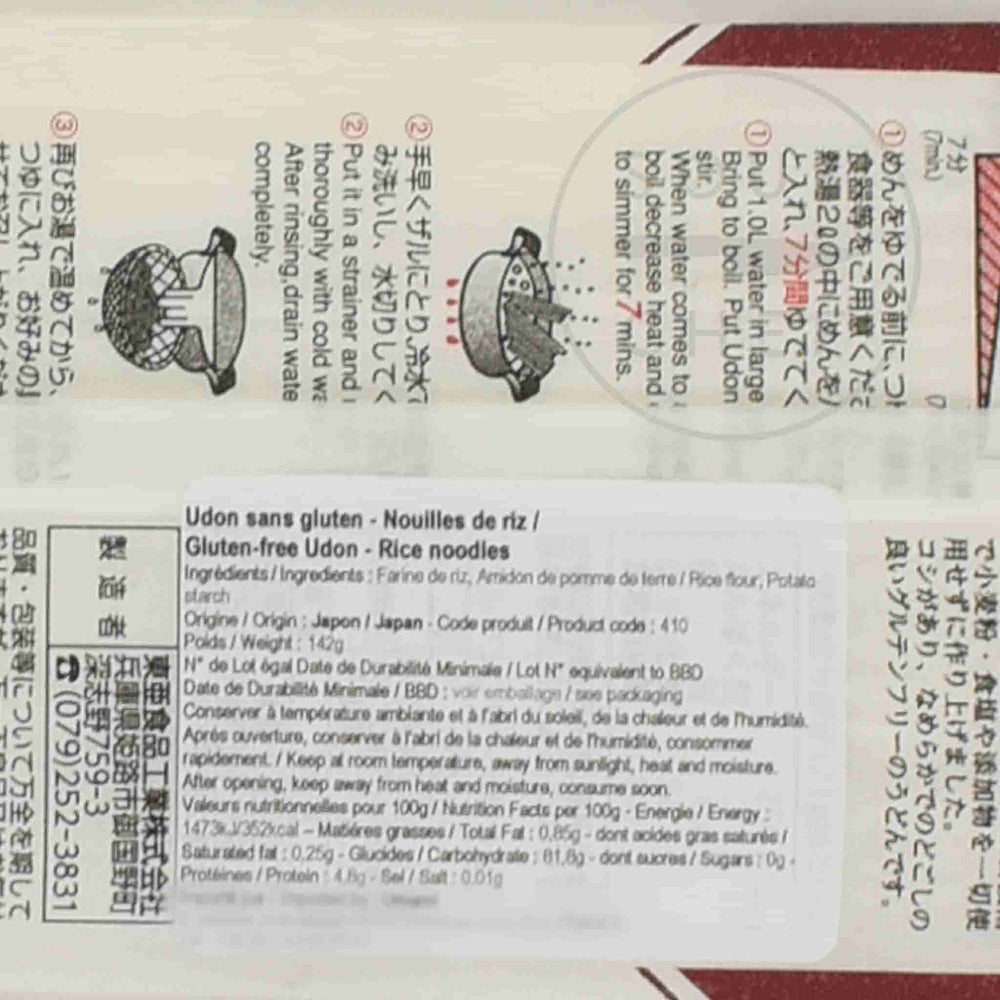 7分
(7min.)
0
① めんをゆでる前に、つ
食器等をご用意くだ
熱湯2ℓの中にめんを
と入れ、7分間ゆでてく
① Put 1.0L water in large
Bring to boil. Put Udon
stir.
When water comes to
boil decrease heat and
to simmer for 7 mins.
② 手早くザルにとり、冷水
み洗いし、水切りしてく
② Put it in a strainer and
thoroughly with cold
After rinsing,drain
completely.
③ 再びお湯で温めてから、
つゆに入れ、お好みの
Udon sans gluten - Nouilles de riz /
Gluten-free Udon - Rice noodles
Ingrédients / Ingredients : Farine de riz, Amidon de pomme de terre / Rice flour, Potato
starch
Origine / Origin : Japon / Japan - Code produit / Product code : 410
Poids / Weight : 142g
N° de Lot égal Date de Durabilité Minimale / Lot N° equivalent to BBD
Date de Durabilité Minimale / BBD : voir emballage / see packaging
Conserver à température ambiante et à l'abri du soleil, de la chaleur et de l'humidité.
Après ouverture, conserver à l'abri de la chaleur et de l'humidité, consommer
rapidement. / Keep at room temperature, away from sunlight, heat and moisture.
After opening, keep away from heat and moisture, consume soon.
Valeurs nutritionnelles pour 100g / Nutrition Facts per 100g - Energie / Energy :
1473kJ/352kcal – Matières grasses / Total Fat : 0,85g - dont acides gras saturés /
Saturated fat : 0,25g - Glucides / Carbohydrate : 81,8g - dont sucres / Sugars : 0g -
Protéines / Protein : 4,8g - Sel / Salt : 0.01g
で小麦粉・食塩や添加物を一切使
用せずに作り上げました。
コシがあり、なめらかでのどごしの
良いグルテンフリーのうどんです。
製造者
東亜食品工業株式会社
兵庫県姫路市御国野町
深志野759-3
☎(079)252-3831
品質・包装等について万全を期して